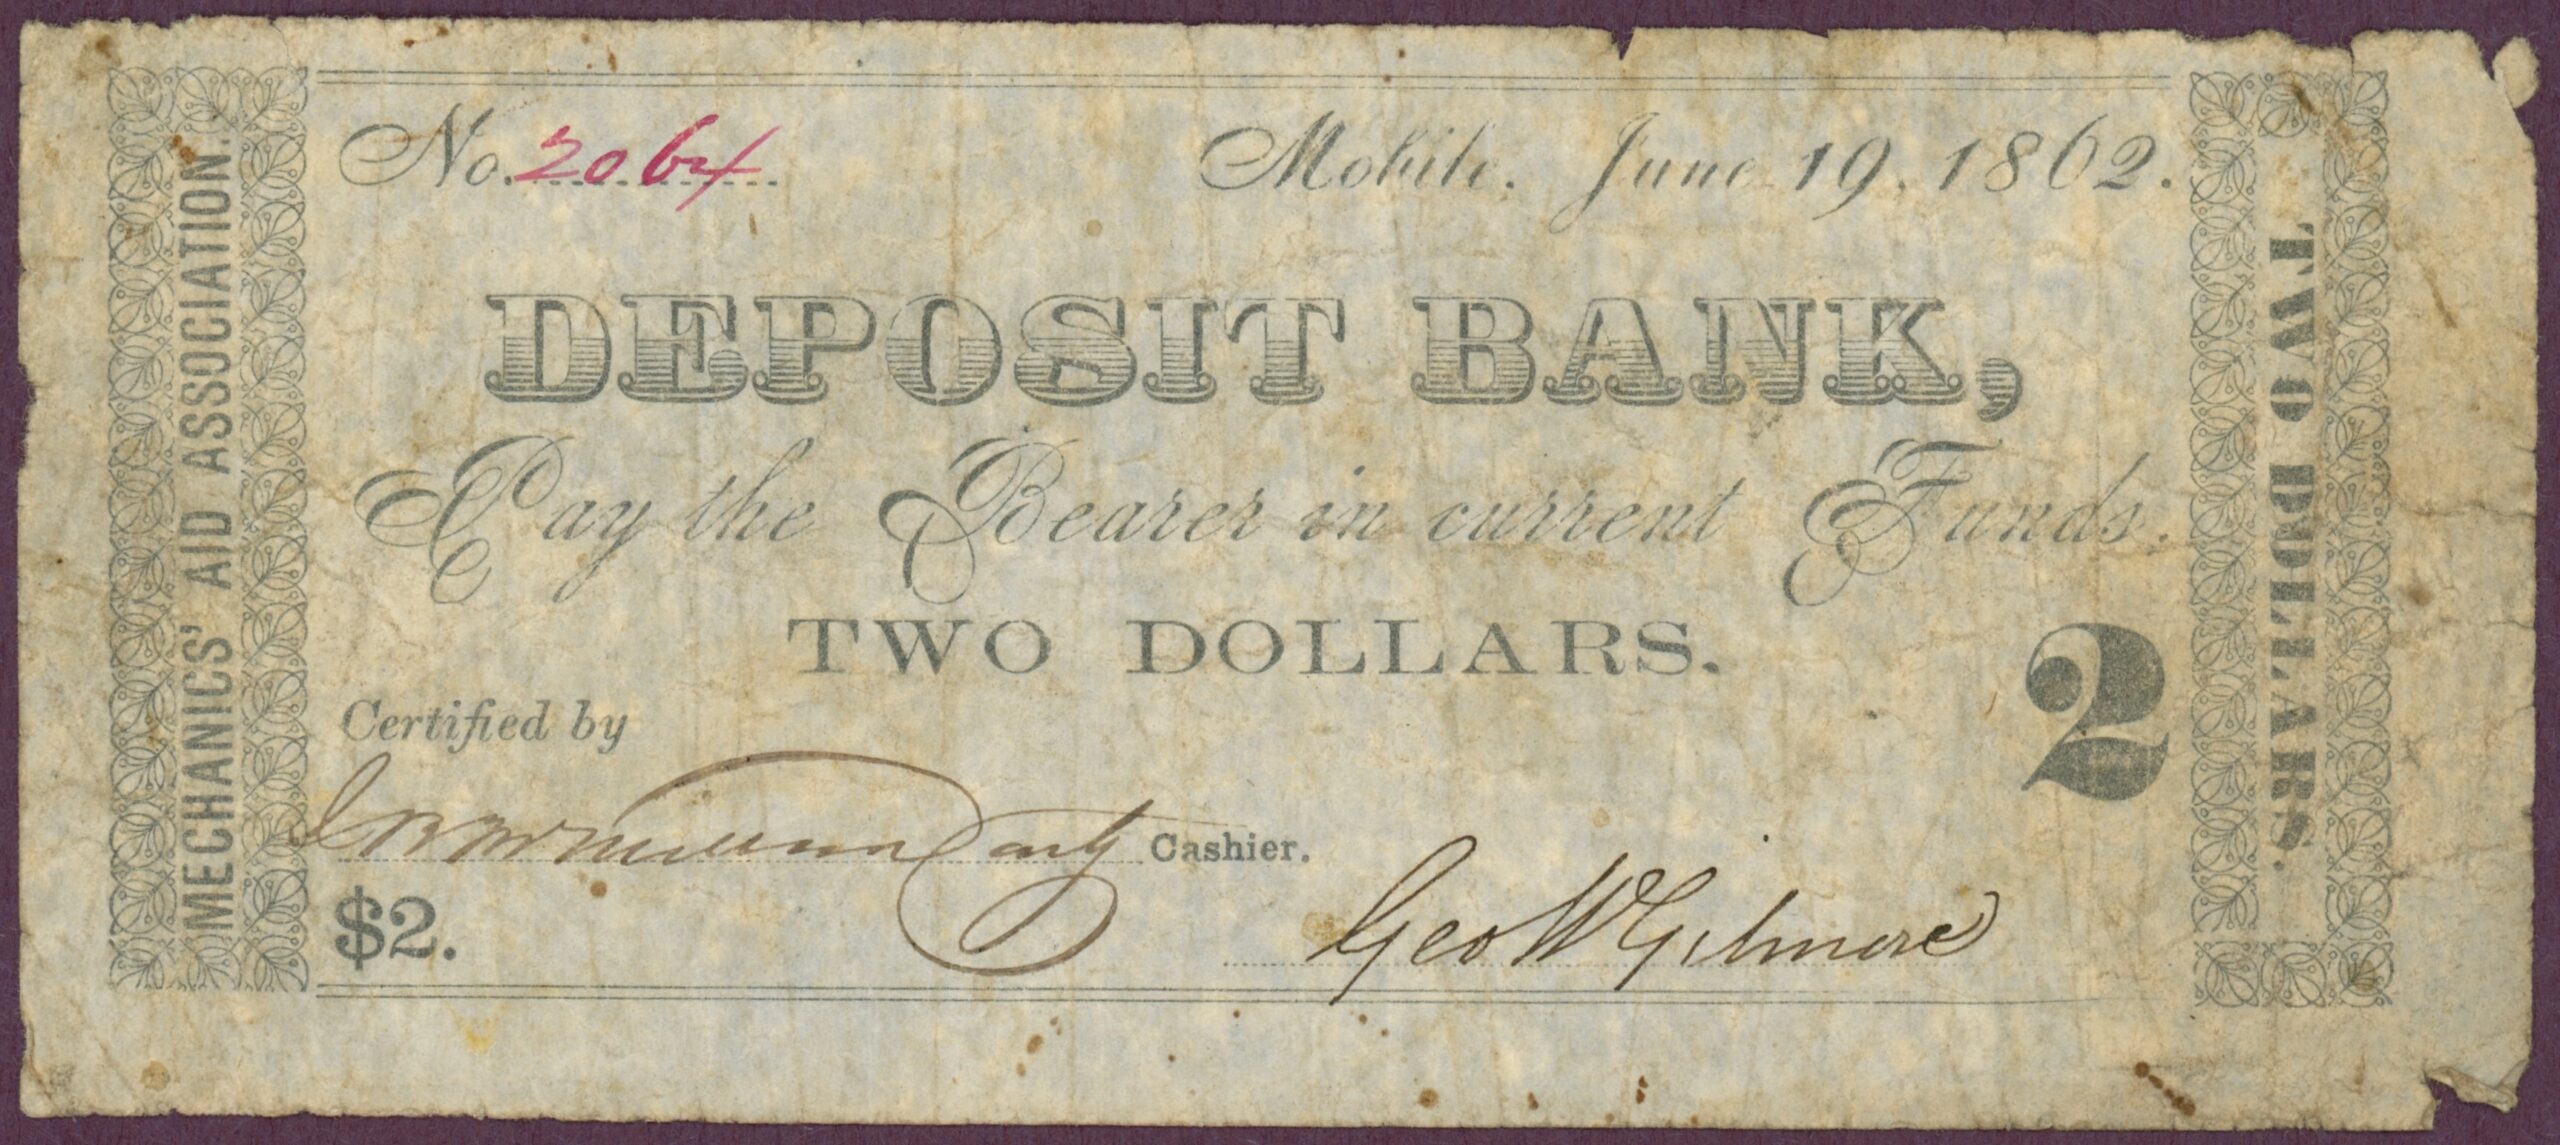 MECHANICS' AID ASSOCIATION.
No. 2064
Mobile. June 19, 1862.
DEPOSIT BANK,
Pay the Bearer in current Funds.
TWO DOLLARS.
2
Certified by
Cashier.
$2.
Geo W Gilmore
TWO DOLLARS.